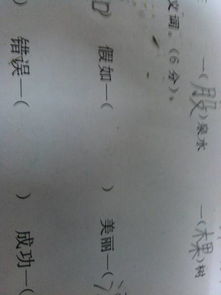 一(股)泉水 一(棵)树
义词。(6分)
假如—( ) 美丽—(
错误—( ) 成功—(